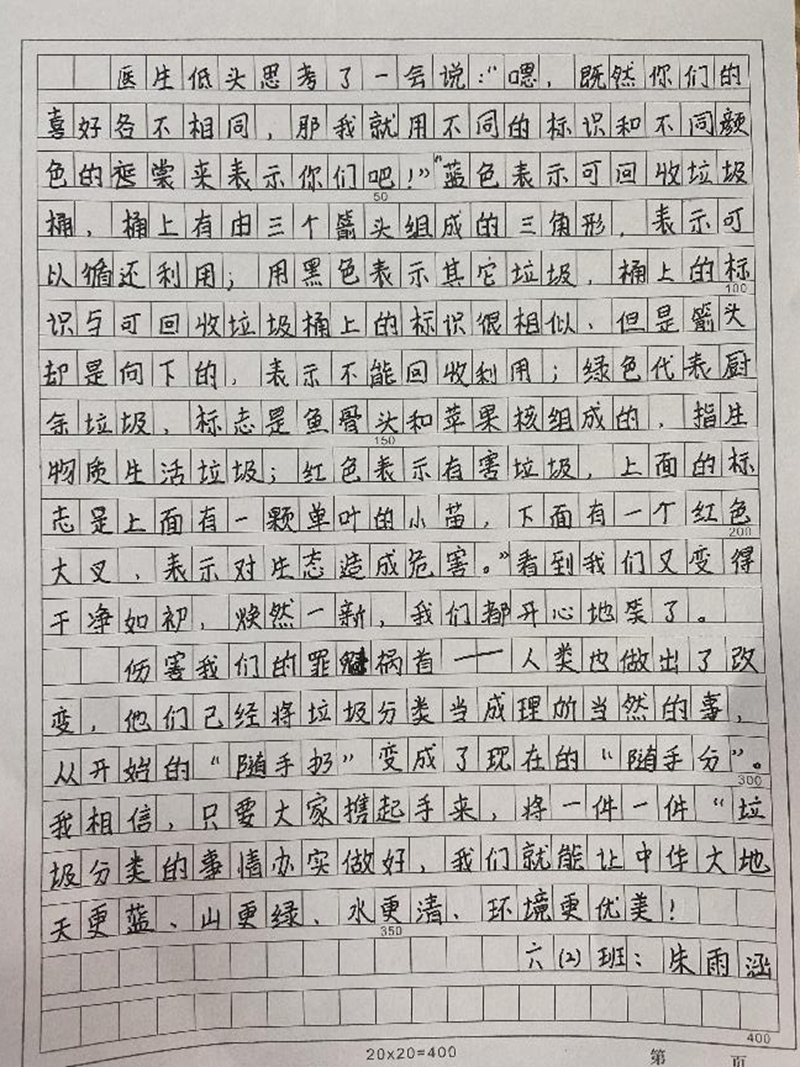 医生低头思考了一会说:“嗯,既然你们的
喜好各不相同,那我就用不同的标识和不同颜
色的衣裳来表示你们吧!”“蓝色表示可回收垃圾
50
桶,桶上有由三个箭头组成的三角形,表示可
以循还利用;用黑色表示其它垃圾,桶上的标
100
识与可回收垃圾桶上的标识很相似、但是箭头
却是向下的,表示不能回收利用;绿色代表厨
余垃圾,标志是鱼骨头和苹果核组成的,指生
150
物质生活垃圾;红色表示有害垃圾,上面的标
志是上面有一颗单叶的小苗,下面有一个红色
200
大叉、表示对生态造成危害。”看到我们又变得
干净如初,焕然一新,我们都开心地笑了。
伤害我们的罪魁祸首——人类也做出了改
变,他们已经将垃圾分类当成理所当然的事,
从开始的“随手扔”变成了现在的“随手分”。
300
我相信,只要大家携起手来,将一件一件“垃
圾分类的事情办实做好,我们就能让中华大地
天更蓝、山更绿、水更清、环境更优美!
350
六(2)班:朱雨涵
400
20x20=400
第 页